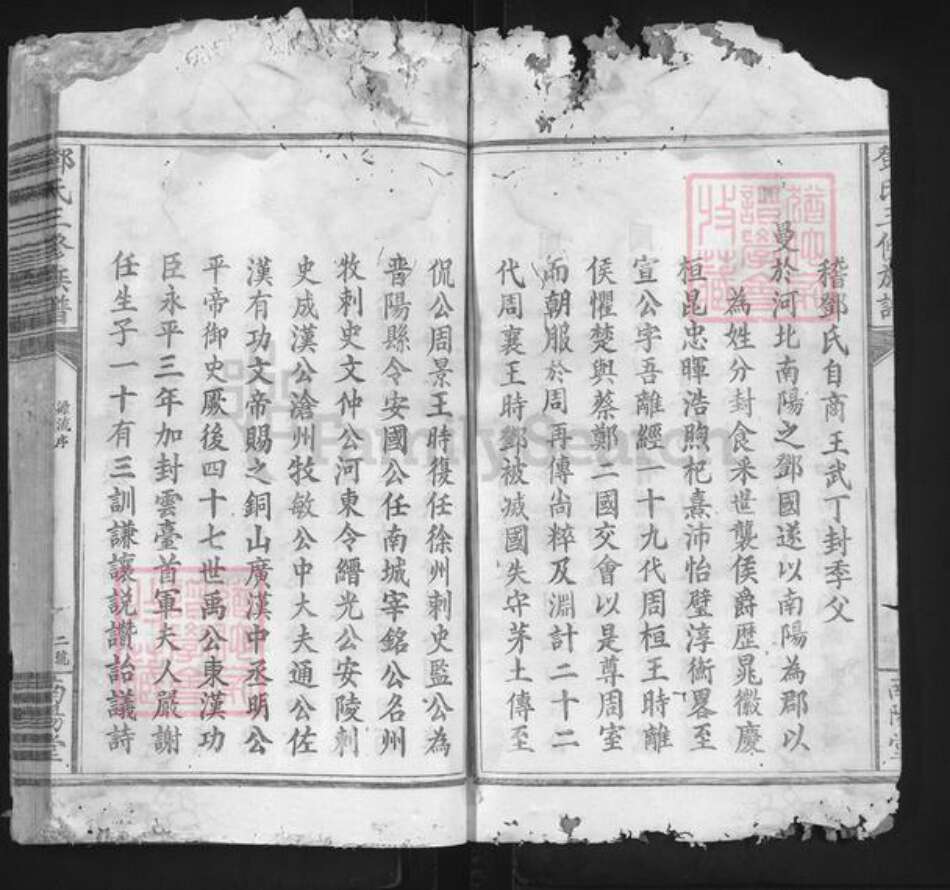 稽鄧氏自商王武丁封季父
曼於河北南陽之鄧國遂以南陽為郡以
為姓分封食采世襲侯爵歷晁徽慶
桓昆忠暉浩煦杞熹沛怡璧淳衡畧至
宣公字吾離經一十九代周桓王時離
侯懼楚與蔡鄭二國交會以是尊周室
而朝服於周再傳尚粹及淵計二十二
代周襄王時鄧被滅國失守茅土傳至
侃公周景王時復任徐州刺史監公為
晋陽縣令安國公任南城宰銘公名州
牧刺史文仲公河東令縉光公安陵刺
史成漢公滄州牧敏公中大夫通公佐
漢有功文帝賜之銅山廣漢中丞明公
平帝御史厥後四十七世禹公東漢功
臣永平三年加封雲臺首軍夫人嚴謝
任生子一十有三訓謙讓説讚詒議詩
鄧氏三修族譜
源流序
二號
南陽堂
FamilySearch